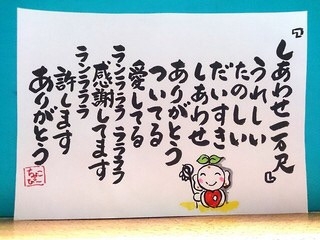 『しあわせ一万尺』
うれしい
たのしい
だいすき
しあわせ
ありがとう
ついてる
愛してる
ランラララ ララララ
感謝してます
ランラララ
許します
ありがとう